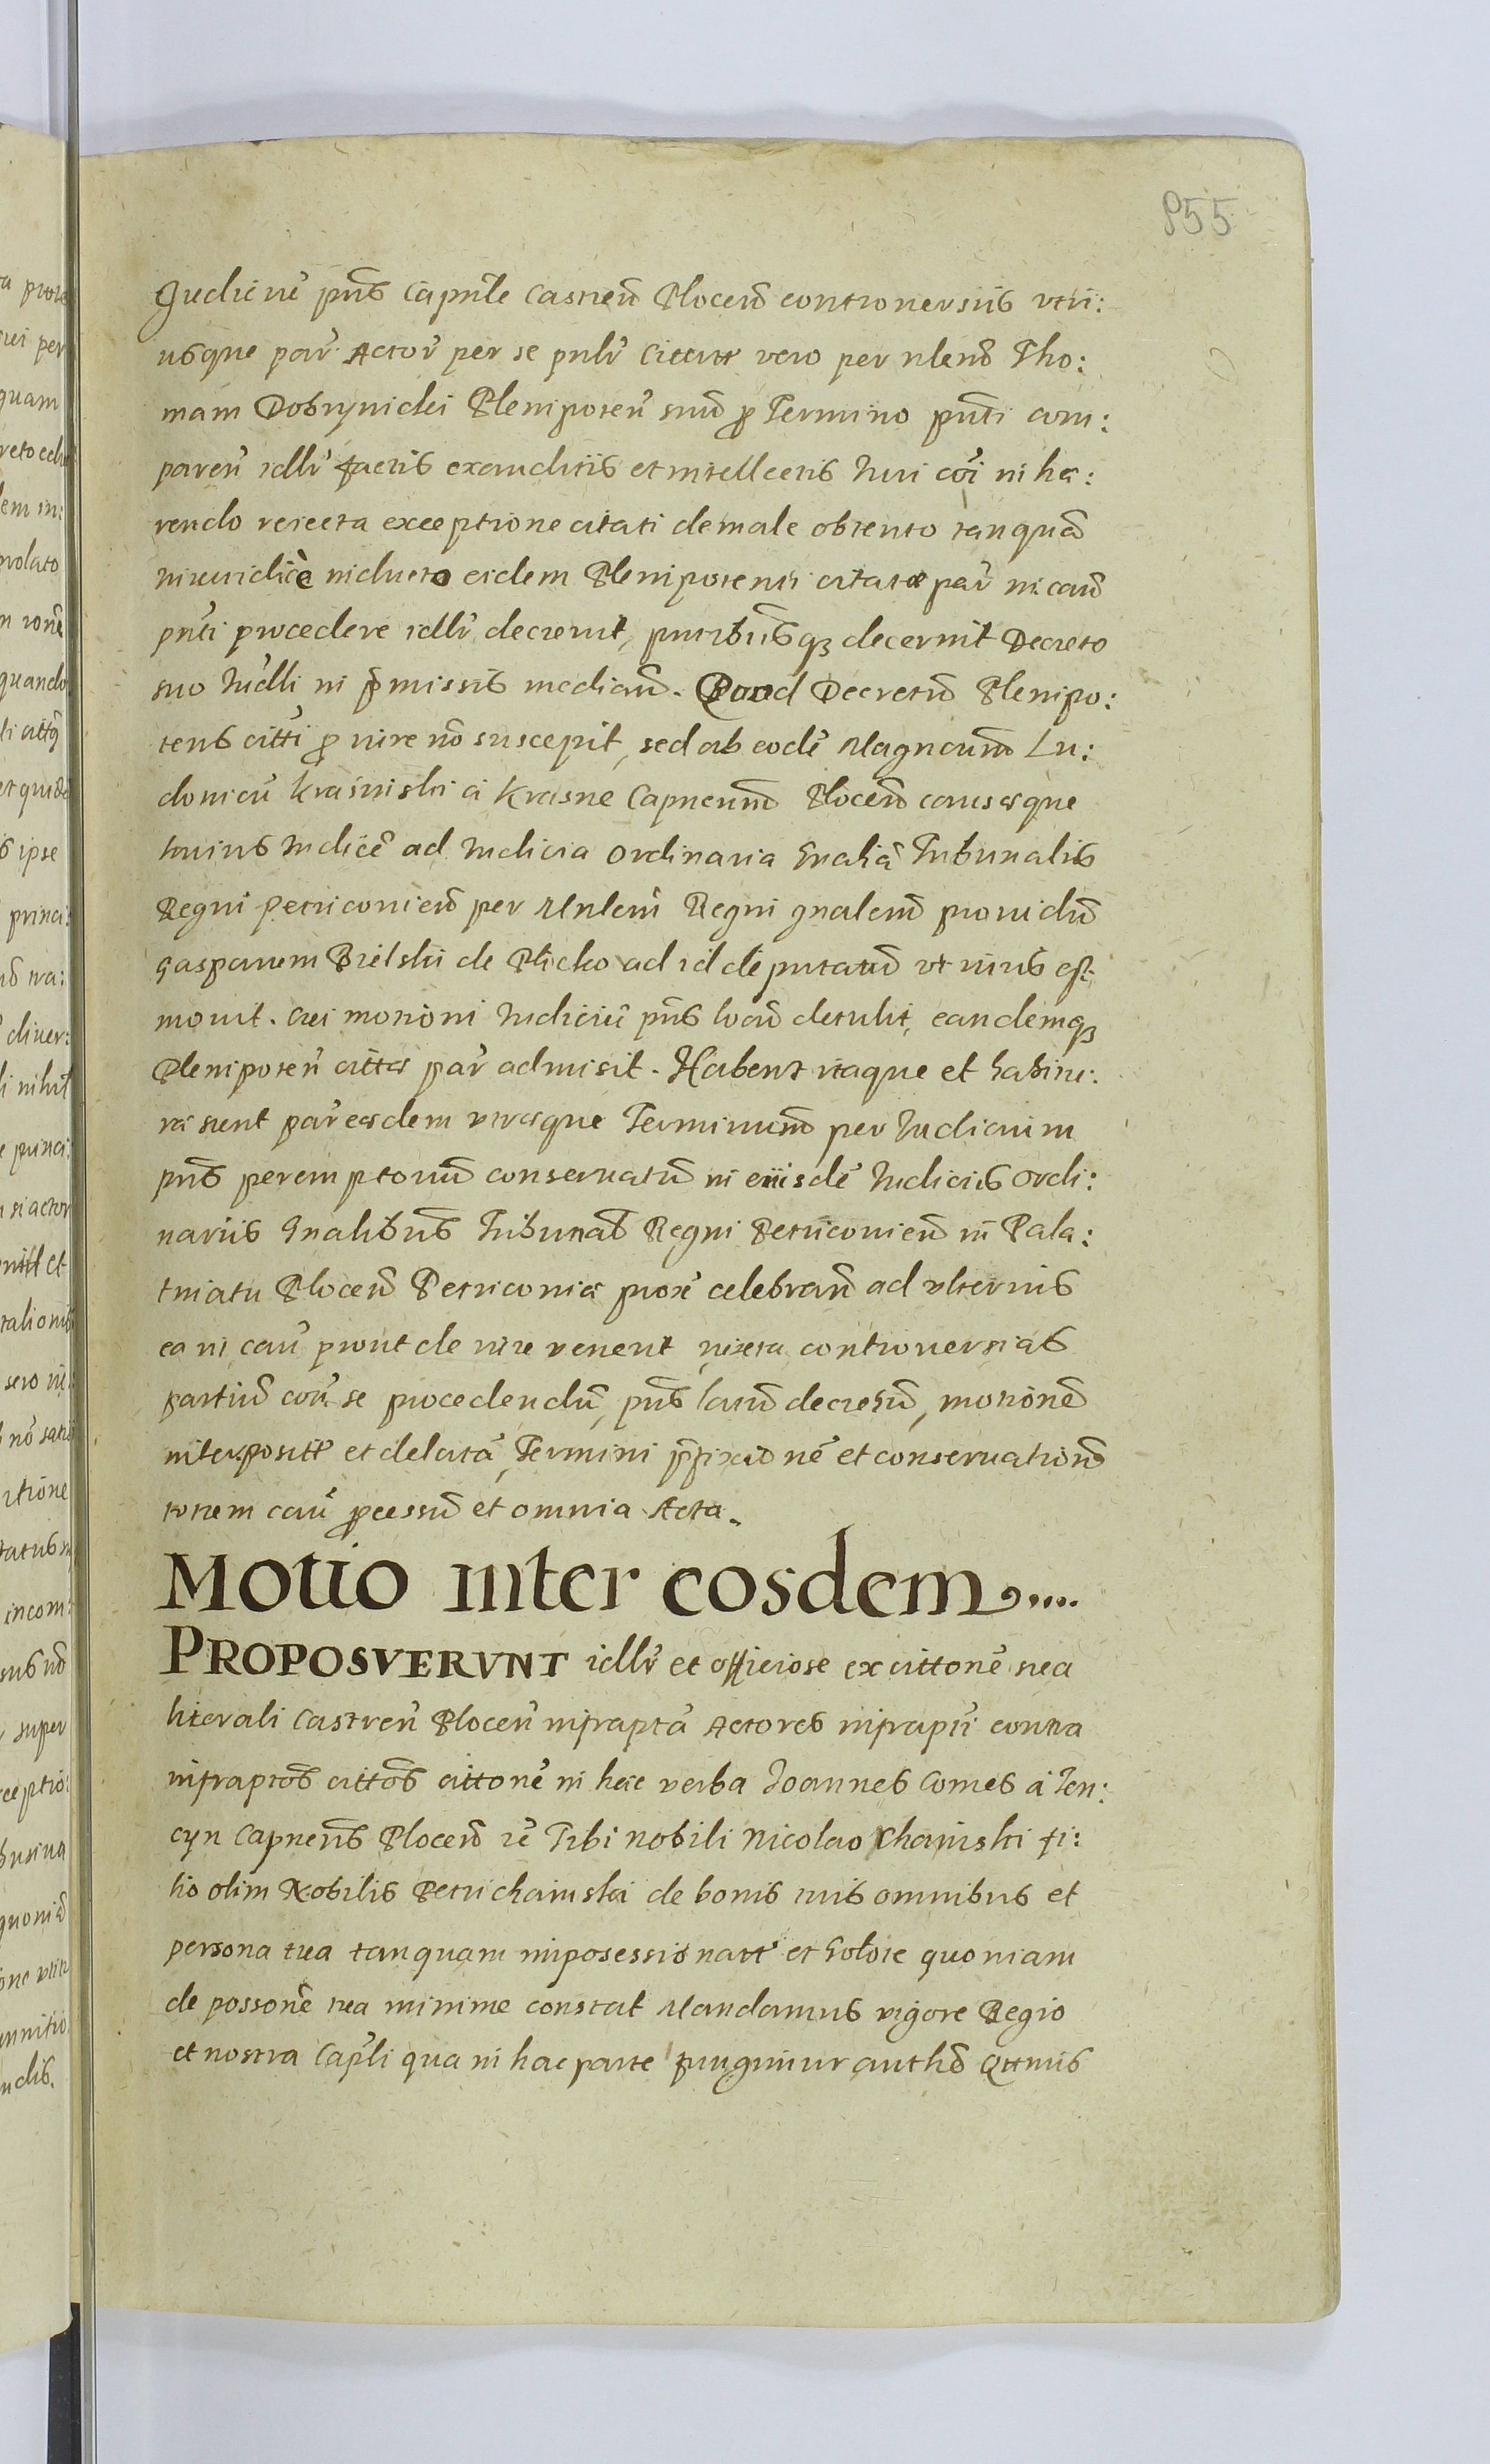 855
Iudiciũ pñs Capnĕle Castreñ Ploceñ controuersiis vtri:
usque par̃ Actor̃ per se pñlr̃ Citati vero per nlem̃ Tho:
mam Dobrzynicki Plenipoteñ suũ p Termino pñti com:
pareñ idlr̃ factis exauditis et intellectis Iuri cõi inha:
rendo reiecta exceptione citati de male obtento tanquã
iniuridicè inducta eidem Plenipotenti citatæ par̃ in caũ
pñti procedere idlr̃ decreuit, pñtibusq3 decernit Decreto
suo Iudlli in p̃missis median̄. Quod Decretũ Plenipo:
tens citti p iure nõ suscepit, sed ab eodẽ Magncum̃ Lu:
douicũ Krasinski a Krasne Capneum̃ Ploceñ causæque
huius Iudicẽ ad Iudicia ordinaria Gnaliã Tribunalis
Regni Petricouieñ per Mnlem̃ Regni gnalem̃ prouidũ
Gasparem Bielski de Plicko ad id deputatũ vt iuris est
mouit. Cui motioni Iudiciũ pñs locũ detulit, eandemq3
Plenipoteñ cittæ par̃ admisit. Habent itaque et habitu:
ræ sunt par̃ eædem vtræque Terminum̃ per Iudicium
pñs peremptoriũ conseruatũ in eiisdẽ Iudiciis Ordi:
nariis Gnalibus Tribunal̃ Regni Petricouieñ in Pala:
tinatu Ploceñ Petricouiæ proxẽ celebrañ ad vlterius
ea in caũ prout de iure venerit iuxta controuersias
partiũ corã se procedendũ, pñs latũ decretũ, motionẽ
interpositã et delatã, Termini p̃fixionẽ et conseruationẽ
totiem caũ pcessũ et omnia Acta.
Motio inter eosdem....
PROPOSVERVNT idlr̃ et officiose ex cittonẽ sua
literali Castreñ Ploceñ infraptã Actores infrapti contra
infraptos cittos cittonẽ in hæc verba Ioannes Comes a Ten:
cyn Capneus Ploceñ ic̃ Tibi nobili Nicolao Chainski fi:
lio olim Nobilis Petri chainski de bonis tuis omnibus et
persona tua tanquam imposessionatæ et solute quoniam
de possonẽ tua minime constat Mandamus vigore Regio
et nostra Capli qua in hac parte fungimur authõ Qttnis